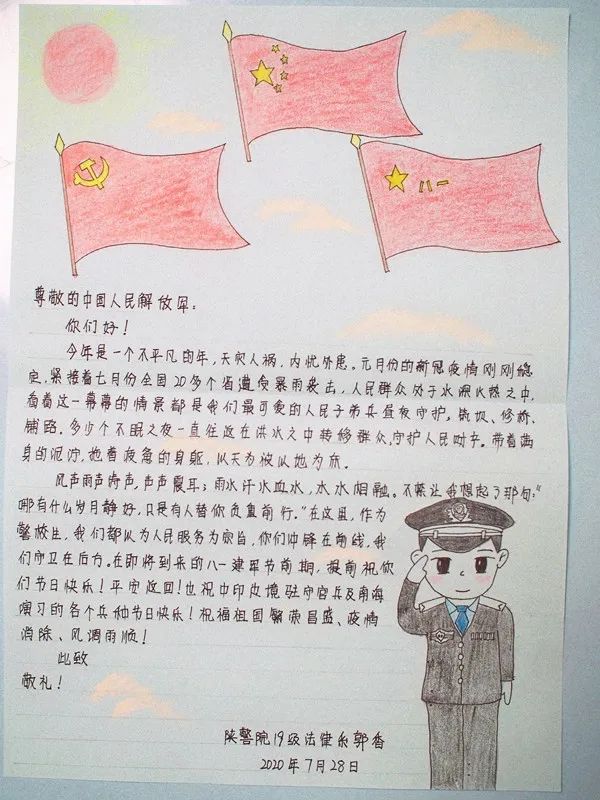 八一
尊敬的中国人民解放军:
你们好!
今年是一个不平凡的年,天灾人祸,内忧外患。元月份的新冠疫情刚刚稳
定,紧接着七月份全国20多个省遭受暴雨袭击,人民群众处于水深火热之中,
看着这一幕幕的情景都是我们最可爱的人民子弟兵昼夜守护,筑坝、修桥、
铺路。多少个不眠之夜一直往返在洪水之中转移群众,守护人民财产。带着满
身的泥泞,拖着疲惫的身躯,以天为被以地为床。
风声雨声涛声,声声震耳;雨水汗水血水,水水相融。不禁让我想起了那句:"
哪有什么岁月静好,只是有人替你负重前行。"在这里,作为
警校生,我们都以为人民服务为宗旨,你们冲锋在前线,我
们守卫在后方。在即将到来的八一建军节前期,提前祝你
们节日快乐!平安返回!也祝中印边境驻守官兵及南海
演习的各个兵种节日快乐!祝福祖国繁荣昌盛、疫情
消除、风调雨顺!
此致
敬礼!
陕警院19级法律系郭香
2020年7月28日